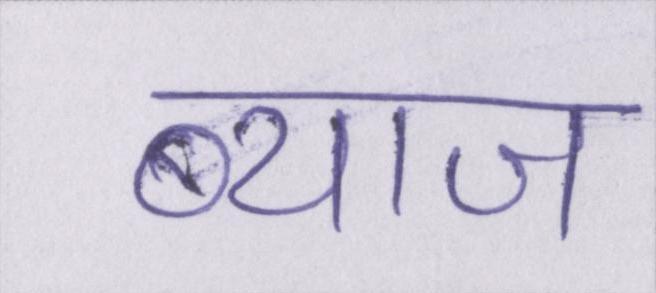 ब्याज